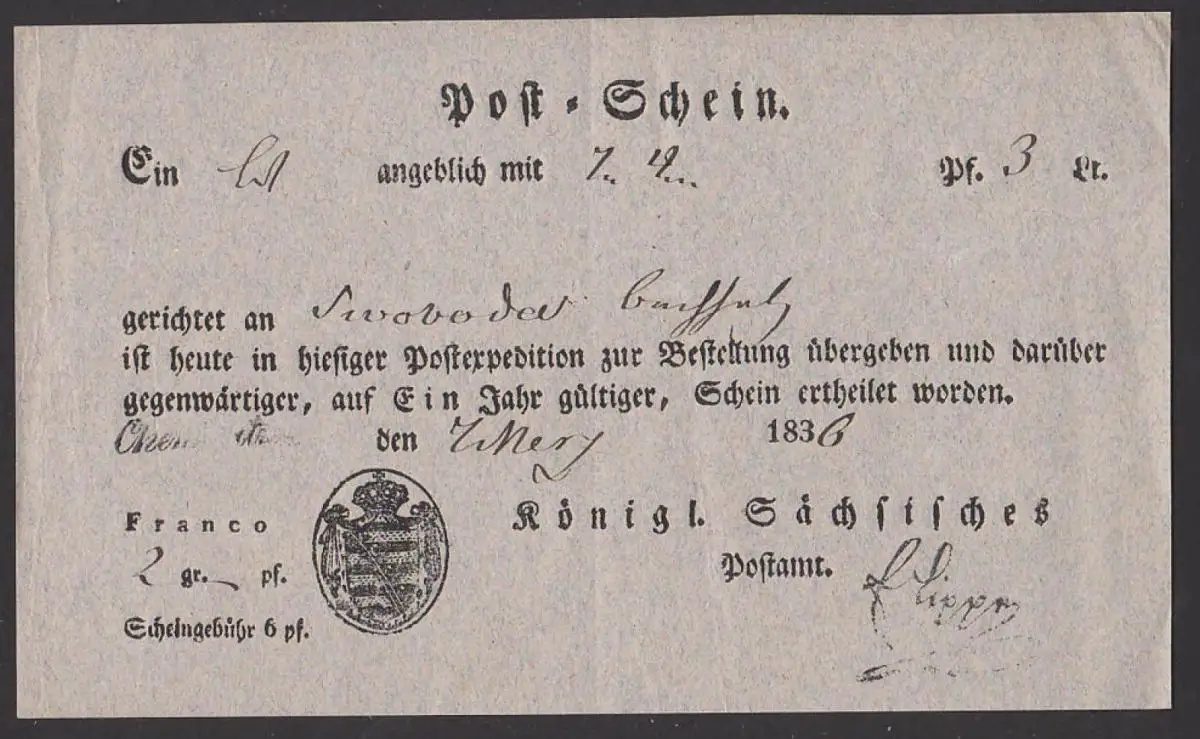 Post-Schein.
Ein angeblich mit Pf. 3 Lt.
gerichtet an Swoboda
ist heute in hiesiger Postexpedition zur Bestellung übergeben und darüber
gegenwärtiger, auf Ein Jahr gültiger, Schein ertheilet worden.
den 1836
Franco
2 gr. — pf.
Scheingebühr 6 pf.
Königl. Sächsisches
Postamt.